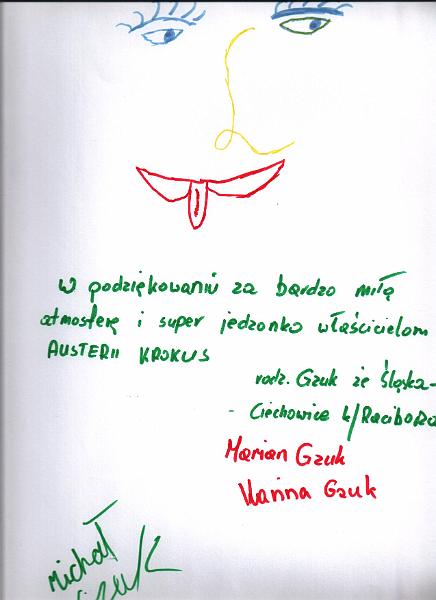 W podziękowaniu za bardzo miłą
atmosferę i super jedzonko właścicielom
AUSTERII KROKUS
rodz. Gzuk ze Śląska-
- Ciechowice k/Raciborza
Marian Gzuk
Hanna Gzuk
Michał
Gzuk